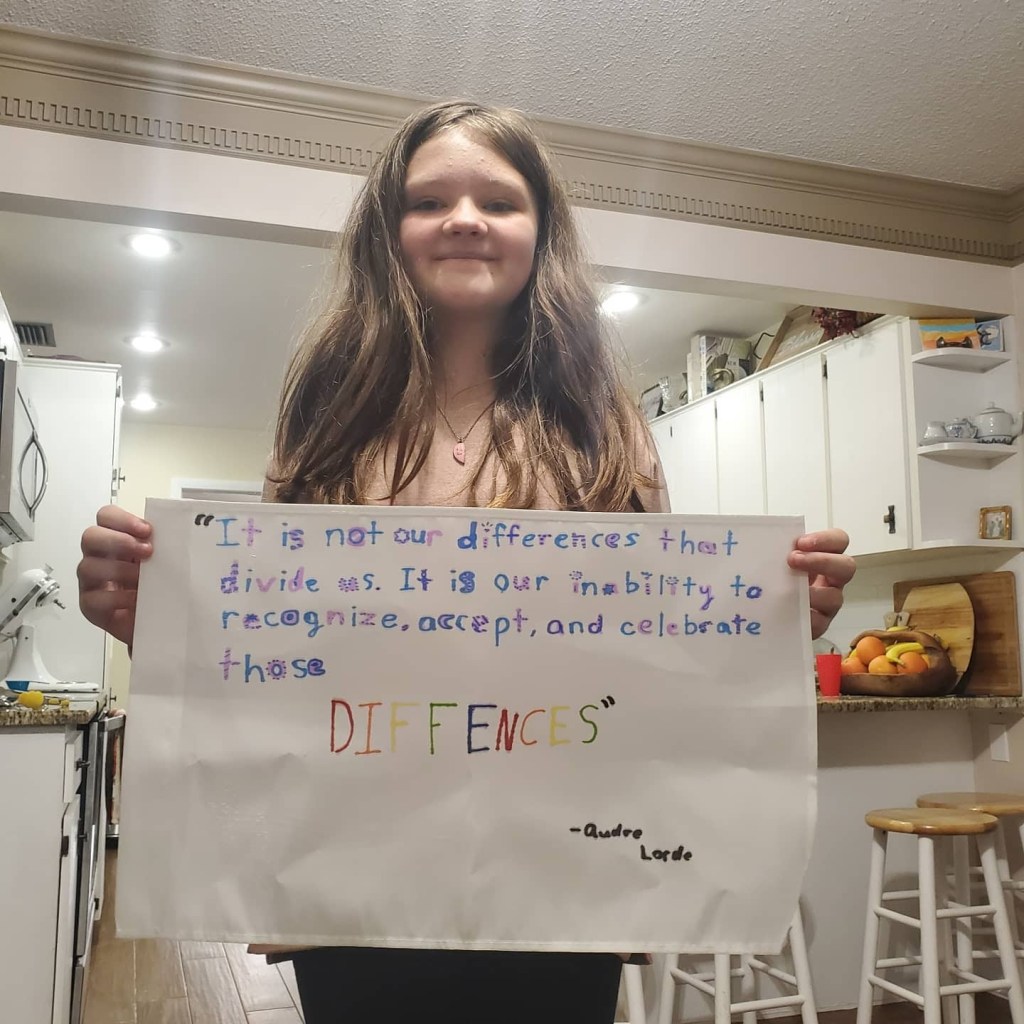 "It is not our differences that
divide us. It is our inability to
recognize, accept, and celebrate
those
DIFFENCES"
-Audre
Lorde